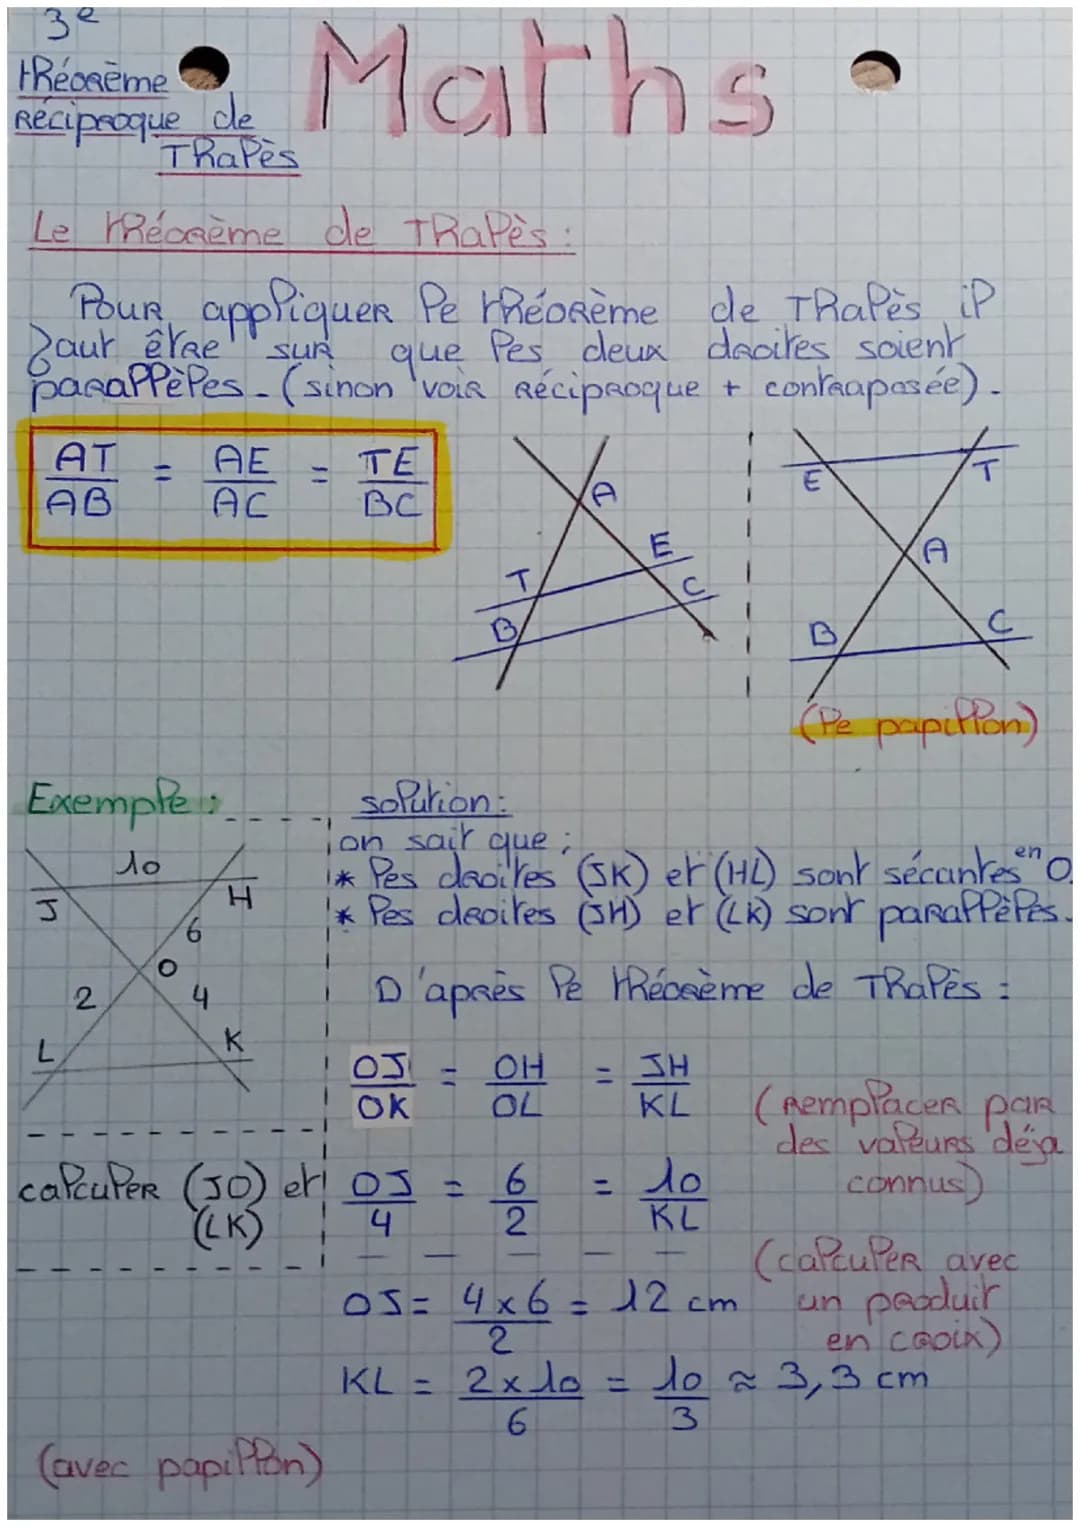 3e
Maths
théorème
réciproque de
Thalès
Le théorème de Thalès :
Pour appliquer le théorème de Thalès il
faut être sur que les deux droites soient
parallèles. (sinon voir réciproque + contraposée).
AT/AB = AE/AC = TE/BC
A
E
T
C
B
E
T
A
B
C
(le papillon)
Exemple :
10
J
H
6
O
2
4
L
K
calculer (JO) et
(LK)
solution :
on sait que :
* les droites (JK) et (HL) sont sécantes en O.
* les droites (JH) et (LK) sont parallèles.
D'après le théorème de Thalès :
OJ/OK = OH/OL = JH/KL
(remplacer par
des valeurs déja
connus)
OJ/4 = 6/2 = 10/KL
(calculer avec
un produit
en croix)
OJ = 4x6/2 = 12 cm
KL = 2x10/6 = 10/3 ≈ 3,3 cm
(avec papillon)